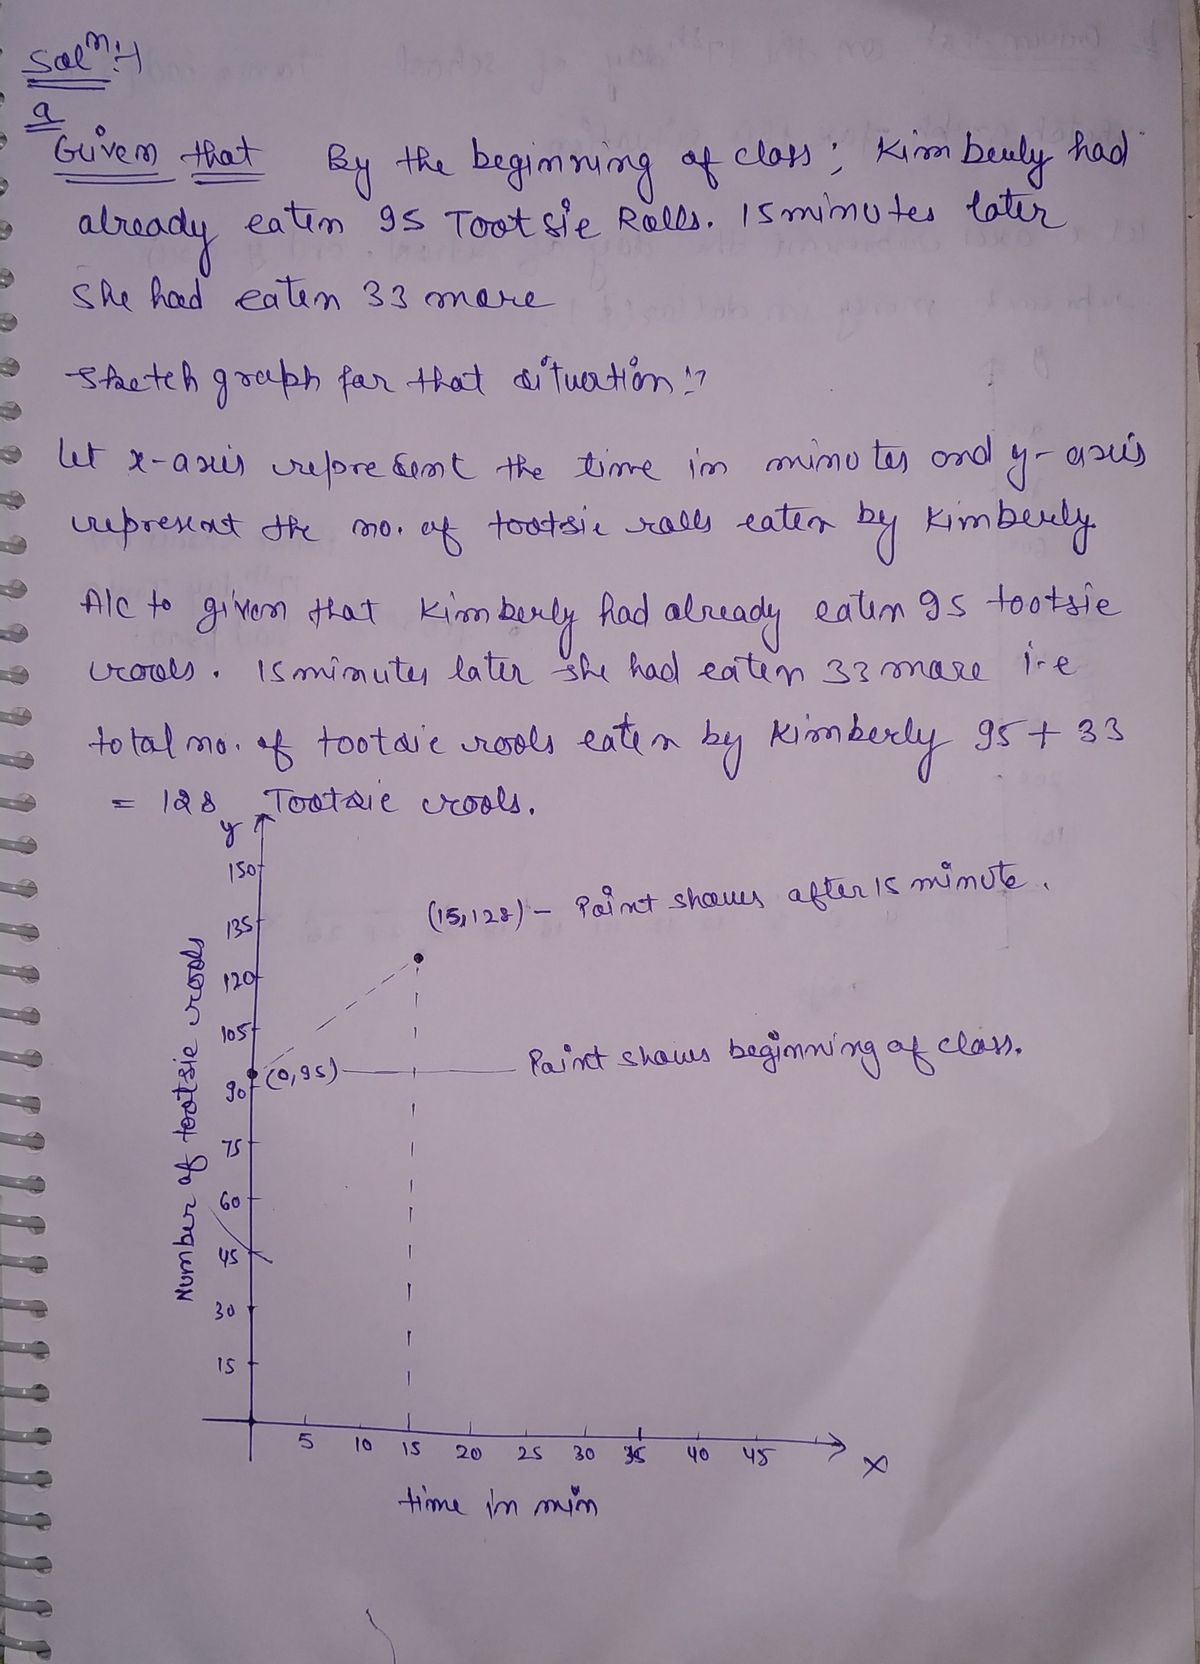 Solⁿ:-)
a
Given that By the beginning of class; Kimberly had
already eaten 95 Tootsie Rolls. 15 minutes later
she had eaten 33 more
Sketch graph for that situation:?
let x-axis represent the time in minutes and y-axis
represent the no. of tootsie rolls eaten by Kimberly
A/c to given that Kimberly had already eaten 95 tootsie
rools. 15 minutes later she had eaten 33 more i.e
total no. of tootsie rools eaten by Kimberly 95 + 33
= 128 Tootsie rools.
y
150
(15,128) - Point shows after 15 minute.
135
120
105
Point shows beginning of class.
(0,95)
90
75
60
45
30
15
Number of tootsie rools
5 10 15 20 25 30 35 40 45 X
time in min